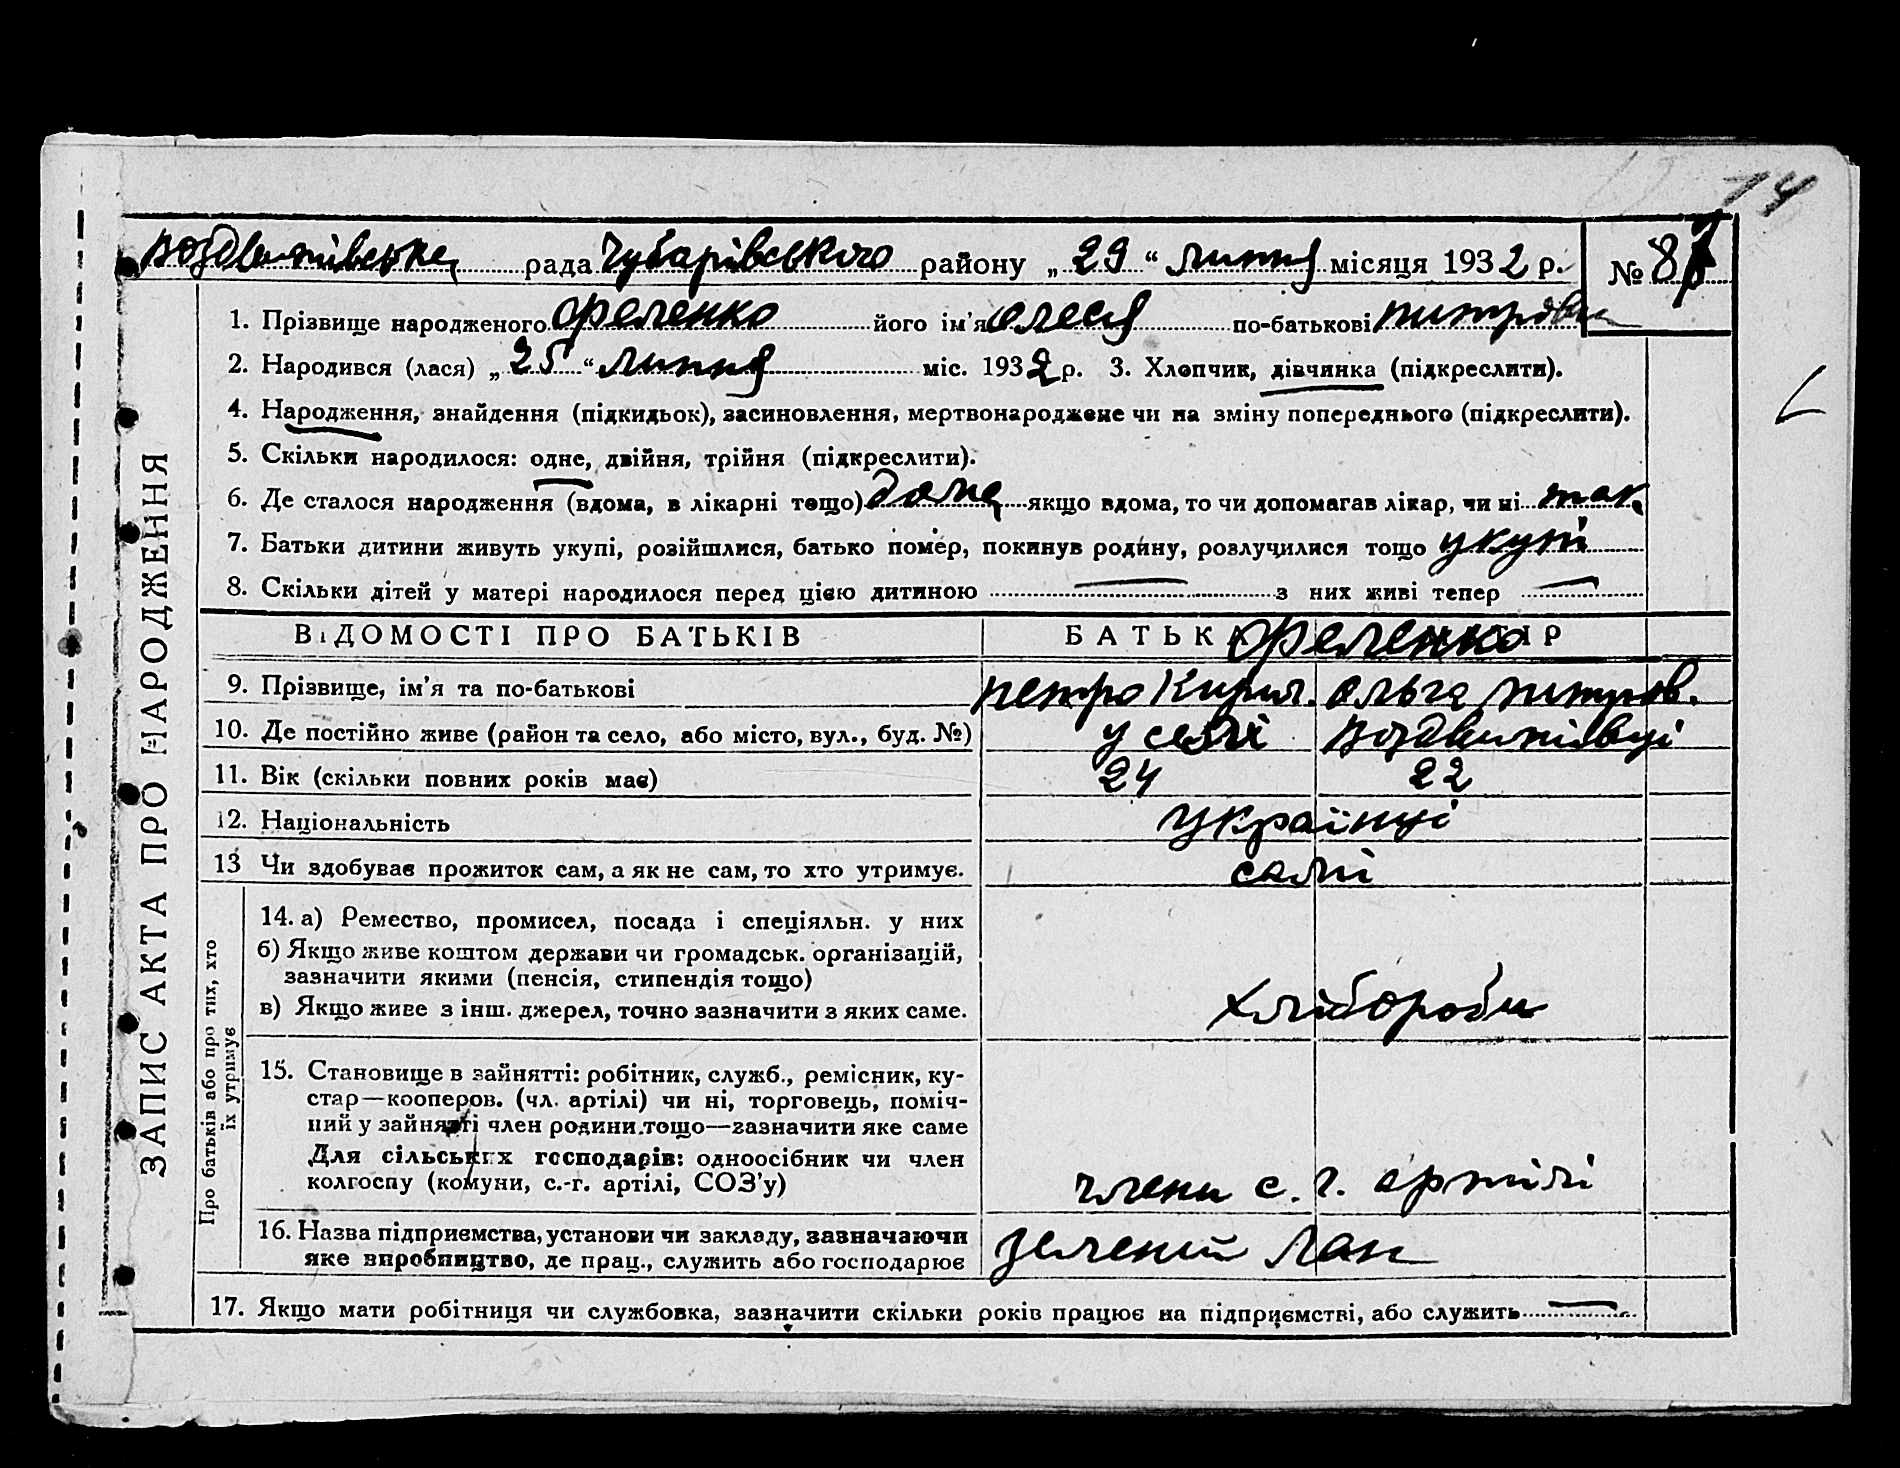 14
Воздвижівська рада Чубарівського району „ 29 “ липня місяця 1932 р. № 87
1. Прізвище народженого Феленко його ім’я Олеся по-батькові Питровн
2. Народився (лася) „ 25 “ липня міс. 1932 р. 3. Хлопчик, дівчинка (підкреслити).
4. Народження, знайдення (підкидьок), засиновлення, мертвонароджене чи на зміну попереднього (підкреслити).
5. Скільки народилося: одне, двійня, трійня (підкреслити).
6. Де сталося народження (вдома, в лікарні тощо) дома якщо вдома, то чи допомагав лікар, чи ні так
7. Батьки дитини живуть укупі, розійшлися, батько помер, покинув родину, розлучилися тощо укупі
8. Скільки дітей у матері народилося перед цією дитиною — з них живі тепер —
ВІДОМОСТІ ПРО БАТЬКІВ БАТЬК Феленко
9. Прізвище, ім’я та по-батькові Петро Кирил. Ольга Питров.
10. Де постійно живе (район та село, або місто, вул., буд. №) у селі Воздвижівці
11. Вік (скільки повних років має) 24 22
12. Національність Українці
13 Чи здобуває прожиток сам, а як не сам, то хто утримує. самі
14. а) Ремество, промисел, посада і спеціяльн. у них
б) Якщо живе коштом держави чи громадськ. організацій,
зазначити якими (пенсія, стипендія тощо)
в) Якщо живе з інш. джерел, точно зазначити з яких саме. Хлібороби
15. Становище в зайнятті: робітник, служб., ремісник, ку-
стар—кооперов. (чл. артілі) чи ні, торговець, поміч-
ний у зайнятті член родини тощо—зазначити яке саме
Для сільських господарів: одноосібник чи член
колгоспу (комуни, с.-г. артілі, СОЗ’у) члени с. г. артілі
16. Назва підприємства, установи чи закладу, зазначаючи
яке виробництво, де прац., служить або господарює Зелений Лан
17. Якщо мати робітниця чи службовка, зазначити скільки років працює на підприємстві, або служить —
ЗАПИС АКТА ПРО НАРОДЖЕННЯ
Про батьків або про тих, хто
їх утримує